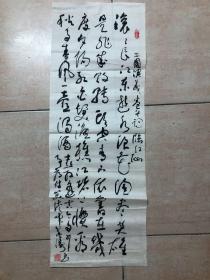 三國演義卷首词 临江仙
滚滚长江东逝水浪花淘尽英雄
是非成败转头空青山依旧在幾
度夕阳红白发渔樵江渚上惯看
秋月春风一壶浊酒喜相逢